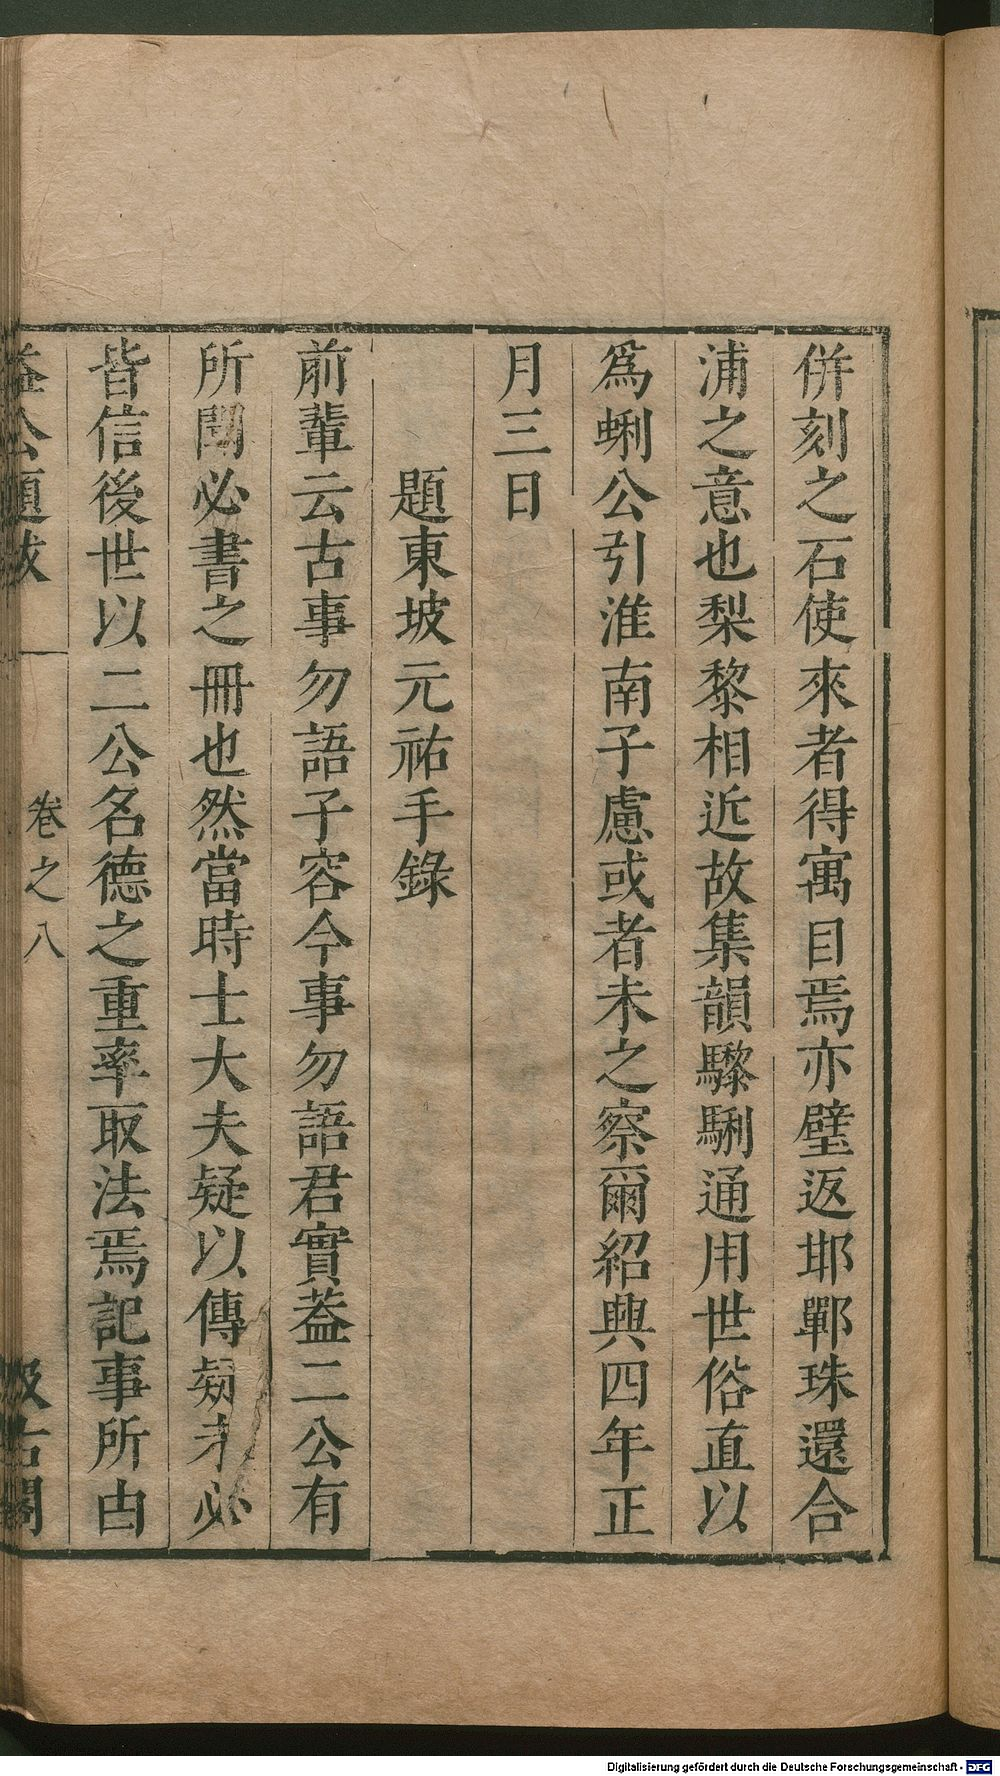 併刻之石使來者得寓目焉亦璧返邯鄲珠還合
浦之意也梨黎相近故集韻驂駠通用世俗直以
爲蜊公引淮南子慮或者未之察爾紹興四年正
月三日
題東坡元祐手錄
前輩云古事勿語子容今事勿語君實葢二公有
所聞必書之冊也然當時士大夫疑以傳疑未必
皆信後世以二公名德之重率取法焉記事所由
益公題跋
卷之八
汲古閣
Digitalisierung gefördert durch die Deutsche Forschungsgemeinschaft - DFG